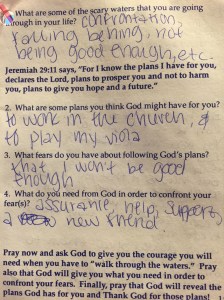 What are some of the scary waters that you are going
through in your life? confrontation,
falling behind, not
being good enough, etc.
Jeremiah 29:11 says, "For I know the plans I have for you,
declares the Lord, plans to prosper you and not to harm
you, plans to give you hope and a future."
2. What are some plans you think God might have for you?
to work in the church, &
to play my viola
3. What fears do you have about following God's plans?
that I won't be good
enough
4. What do you need from God in order to confront your
fear(s)? assurance, help, support,
a new friend
Pray now and ask God to give you the courage you will
need when you have to "walk through the waters." Pray
also that God will give you what you need in order to
confront your fears. Finally, pray that God will reveal the
plans God has for you and Thank God for those plans